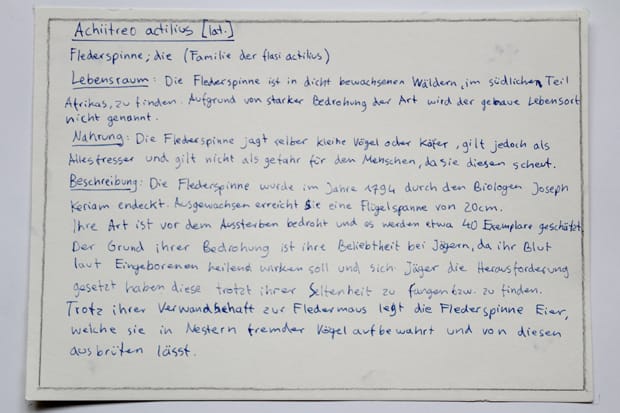 Achiitreo actilius [lat.]
Flederspinne; die (Familie der flasi actilius)
Lebensraum: Die Flederspinne ist in dicht bewachsenen Wäldern, im südlichen Teil
Afrikas, zu finden. Aufgrund von starker Bedrohung der Art wird der genaue Lebensort
nicht genannt.
Nahrung: Die Flederspinne jagt selber kleine Vögel oder Käfer, gilt jedoch als
Allesfresser und gilt nicht als gefahr für den Menschen, da sie diesen scheut.
Beschreibung: Die Flederspinne wurde im Jahre 1794 durch den Biologen Joseph
Keriam endeckt. Ausgewachsen erreicht sie eine Flügelspanne von 20cm.
Ihre Art ist vor dem Aussterben bedroht und es werden etwa 40 Exemplare geschätzt.
Der Grund ihrer Bedrohung ist ihre Beliebtheit bei Jägern, da ihr Blut
laut Eingeborenen heilend wirken soll und sich Jäger die Herausforderung
gesetzt haben diese trotzt ihrer Seltenheit zu fangen bzw. zu finden.
Trotz ihrer Verwandschaft zur Fledermaus legt die Flederspinne Eier,
welche sie in Nestern fremder Vögel aufbewahrt und von diesen
ausbrüten lässt.